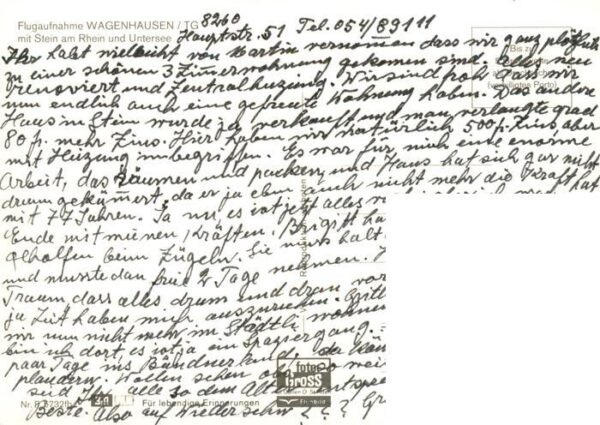 Flugaufnahme WAGENHAUSEN / TG
mit Stein am Rhein und Untersee
8260
Hauptstr. 51 Tel. 054/89111
Ihr habt vielleicht von Martin vernommen dass wir ganz plötzlich
zu einer schönen 3 Zimmerwohnung gekommen sind. alles neu
renoviert und Zentralheizung. Wir sind froh dass wir
nun endlich auch eine gefreute Wohnung haben. Das andere
Haus in Stein wurde ja verkauft und man verlangte grad
80 fr. mehr Zins. Hier haben wir natürlich 500 fr. Zins, aber
mit Heizung inbegriffen. Es war für mich eine enorme
Arbeit, das räumen und packen, und Hans hat sich gar nicht
drum gekümert, da er ja eben auch nicht mehr die Kraft hat
mit 77 Jahren. Ja nu, es ist jetzt alles
Ende mit meinen Kräften. Brigitt
geholfen beim Zügeln. Sie muss halt
und musste dan frei 2 Tage nehmen.
Traum, dass alles drum und dran
ja Zeit haben auszuruhen.
wir nun nicht mehr im Städtli wohnen
bin ich dort, es ist ja ein Spaziergang.
paar Tage ins Bündnerland,
plaudern. Wollen sehen
sind Ihr alle so dem Alter entspre
Beste. Also auf Wiedersehn ? ? ?
foto
Gross
Flugbild
Für lebendige Erinnerungen